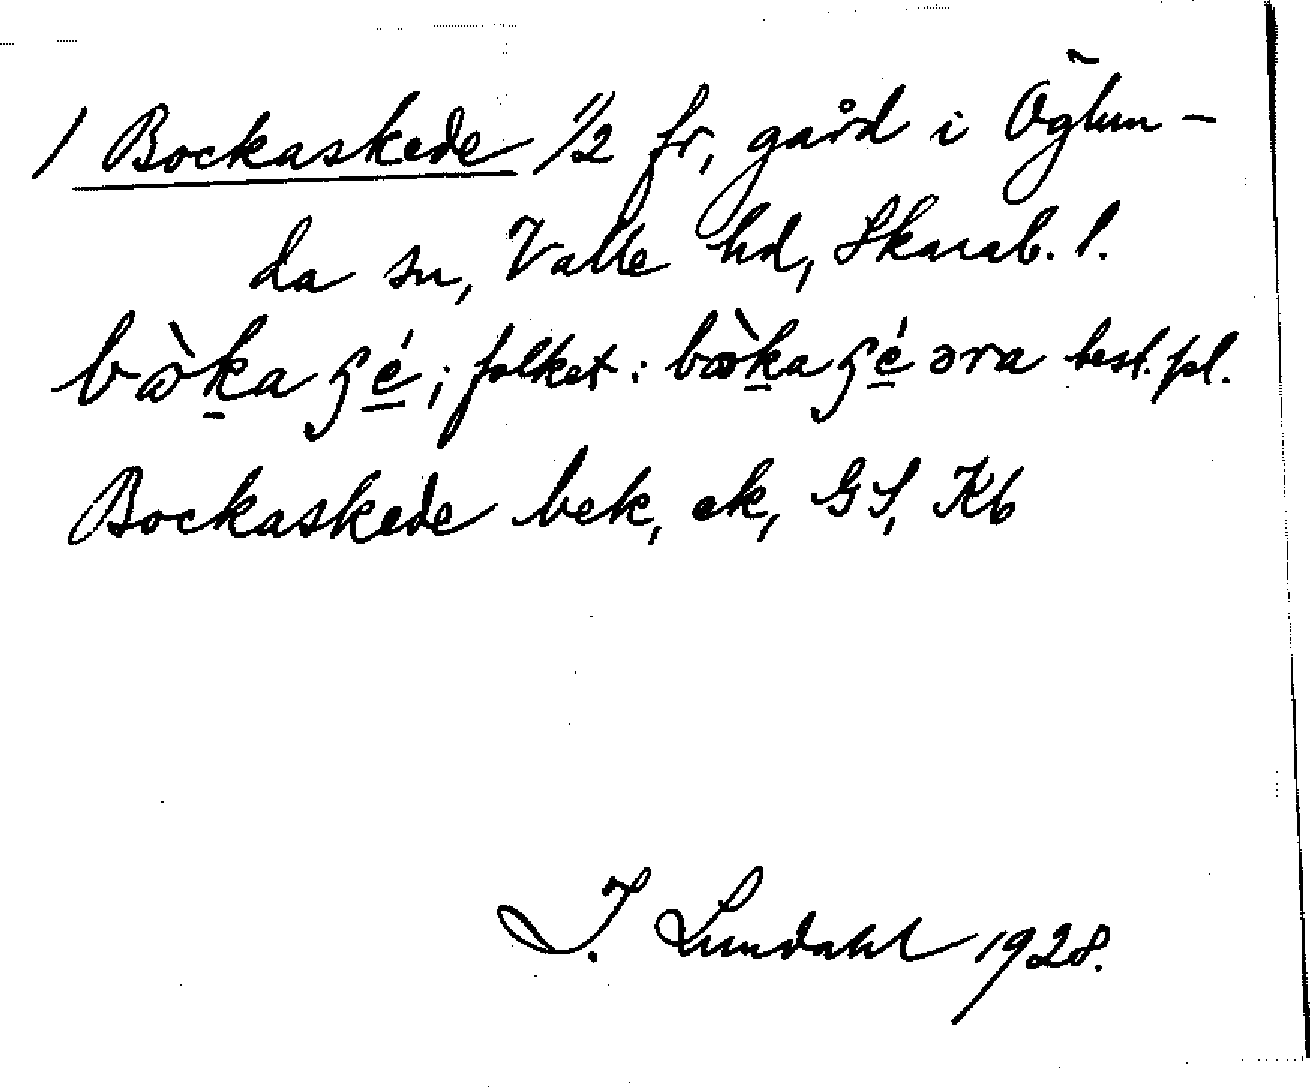 1 Bockaskede 1/2 fr, gård i Öglun-
da sn, Valle hd, Skarab. l.
bòka ʃé; folket: bòkaʃéəra best. pl.
Bockaskede bek, ek, GS, Kb
I. Lundahl 1928.